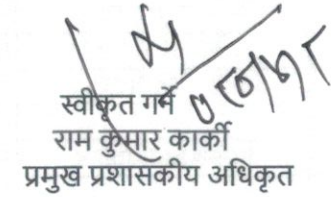 स्वीकृत गर्ने
राम कुमार कार्की
प्रमुख प्रशासकीय अधिकृत